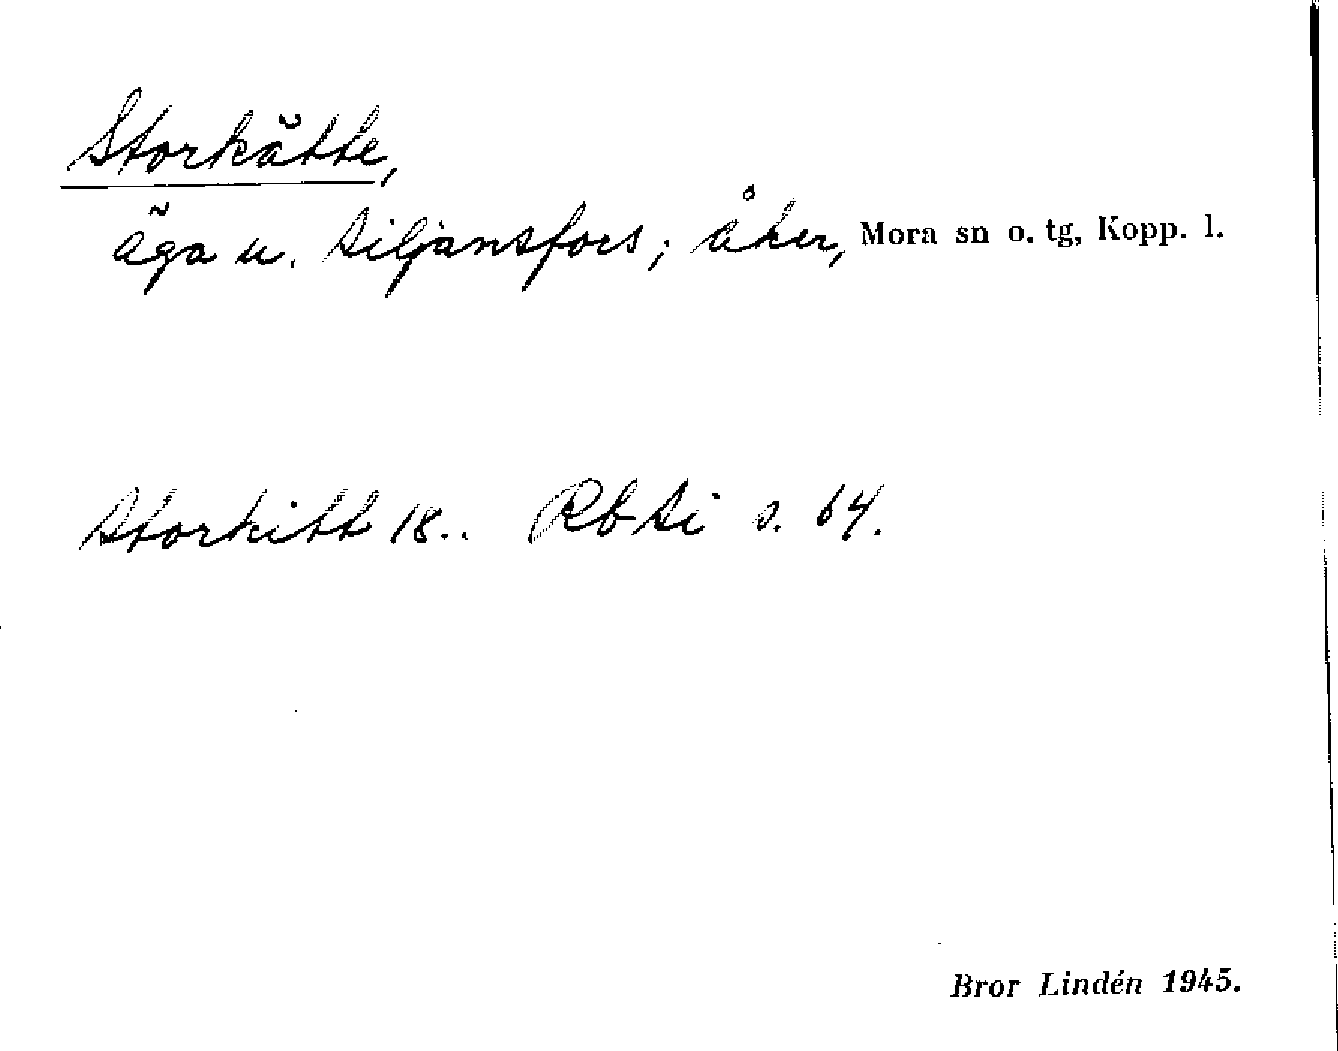 Storkätte,
äga u. Siljansfors; åker, Mora sn o. tg, Kopp. l.
Storkitt 18.. Rb Si s. 64.
Bror Lindén 1945.